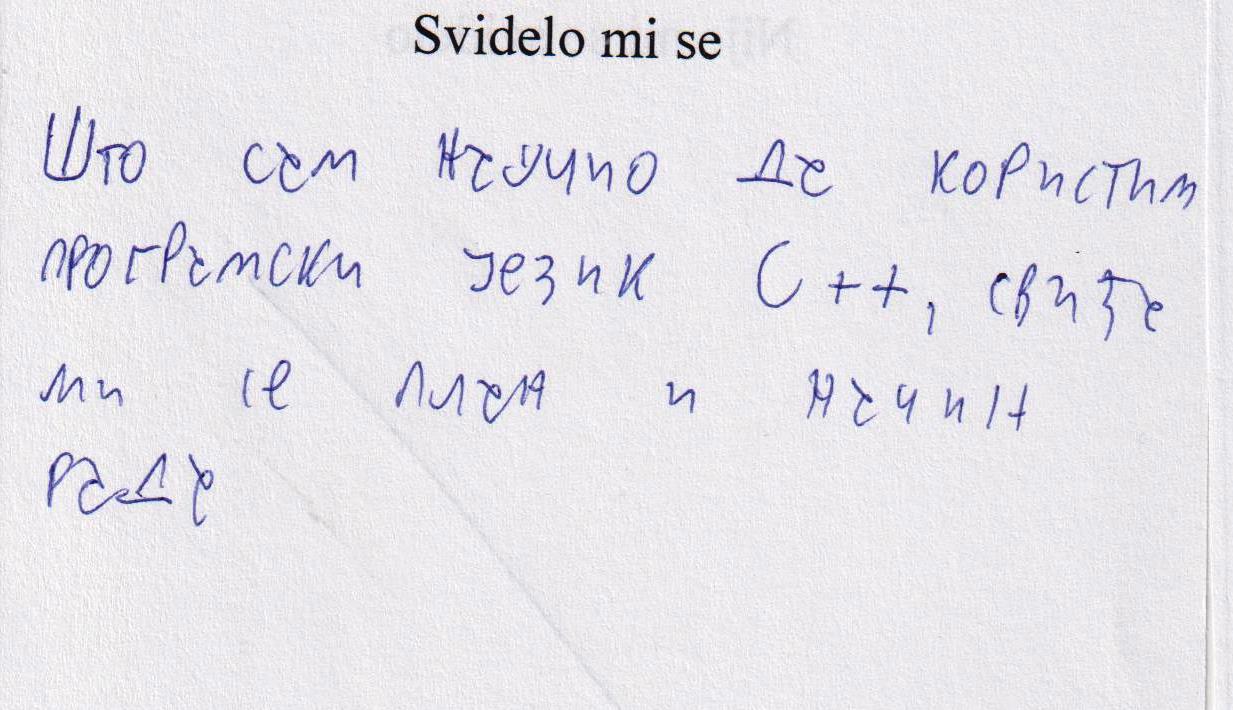 Svidelo mi se
Што сам научио да користим
програмски језик C++, свиђа
ми се план и начин
рада